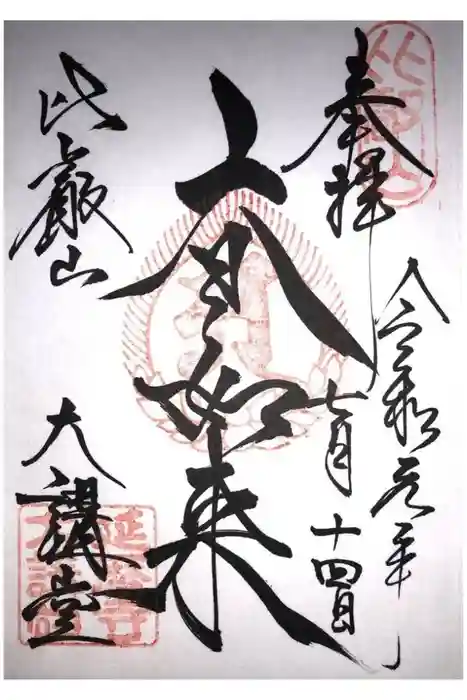 比叡山
奉拝
令和元年
七月十四日
大日如来
比叡山
大講堂
延暦寺
大講堂